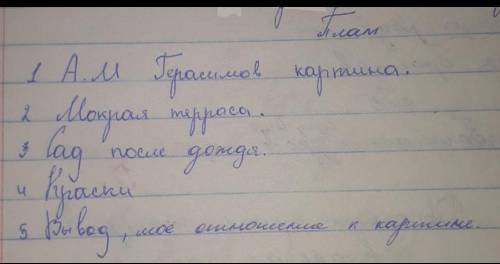 План
1 А.М Герасимов картина.
2 Мокрая терраса.
3 Сад после дождя.
4 Краски
5 Вывод, моё отношение к картине.